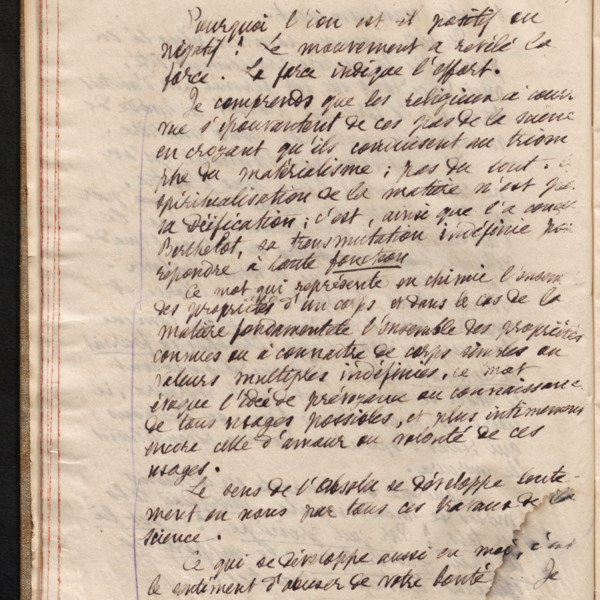 Pourquoi l'ion est-il positif ou
négatif ? Le mouvement a révélé la
force. La force indique l'effort.
Je comprends que les religieux à courte
vue s'épouvantent de ces pas de la science
en croyant qu'ils conduisent au triom
phe du matérialisme ; pas du tout. La
spiritualisation de la matière n'est que
sa déification ; c'est, ainsi que l'a conçu
Berthelot, sa transmutation indéfinie pour
répondre à toute fonction
Ce mot qui représente en chimie l'ensemble
des propriétés d'un corps et dans le cas de la
matière fondamentale l'ensemble des propriétés
connues ou à connaître de corps simples ou
valeurs multiples indéfinies, ce mot
évoque l'idée de prévoyance ou connaissance
de tous usages possibles, et plus intimement
encore celle d'amour ou volonté de ces
usages.
Le sens de l'Absolu se développe lente-
ment en nous par tous ces travaux de la
science.
Ce qui se développe aussi en moi, c'est
le sentiment d'abuser de votre bonté Je